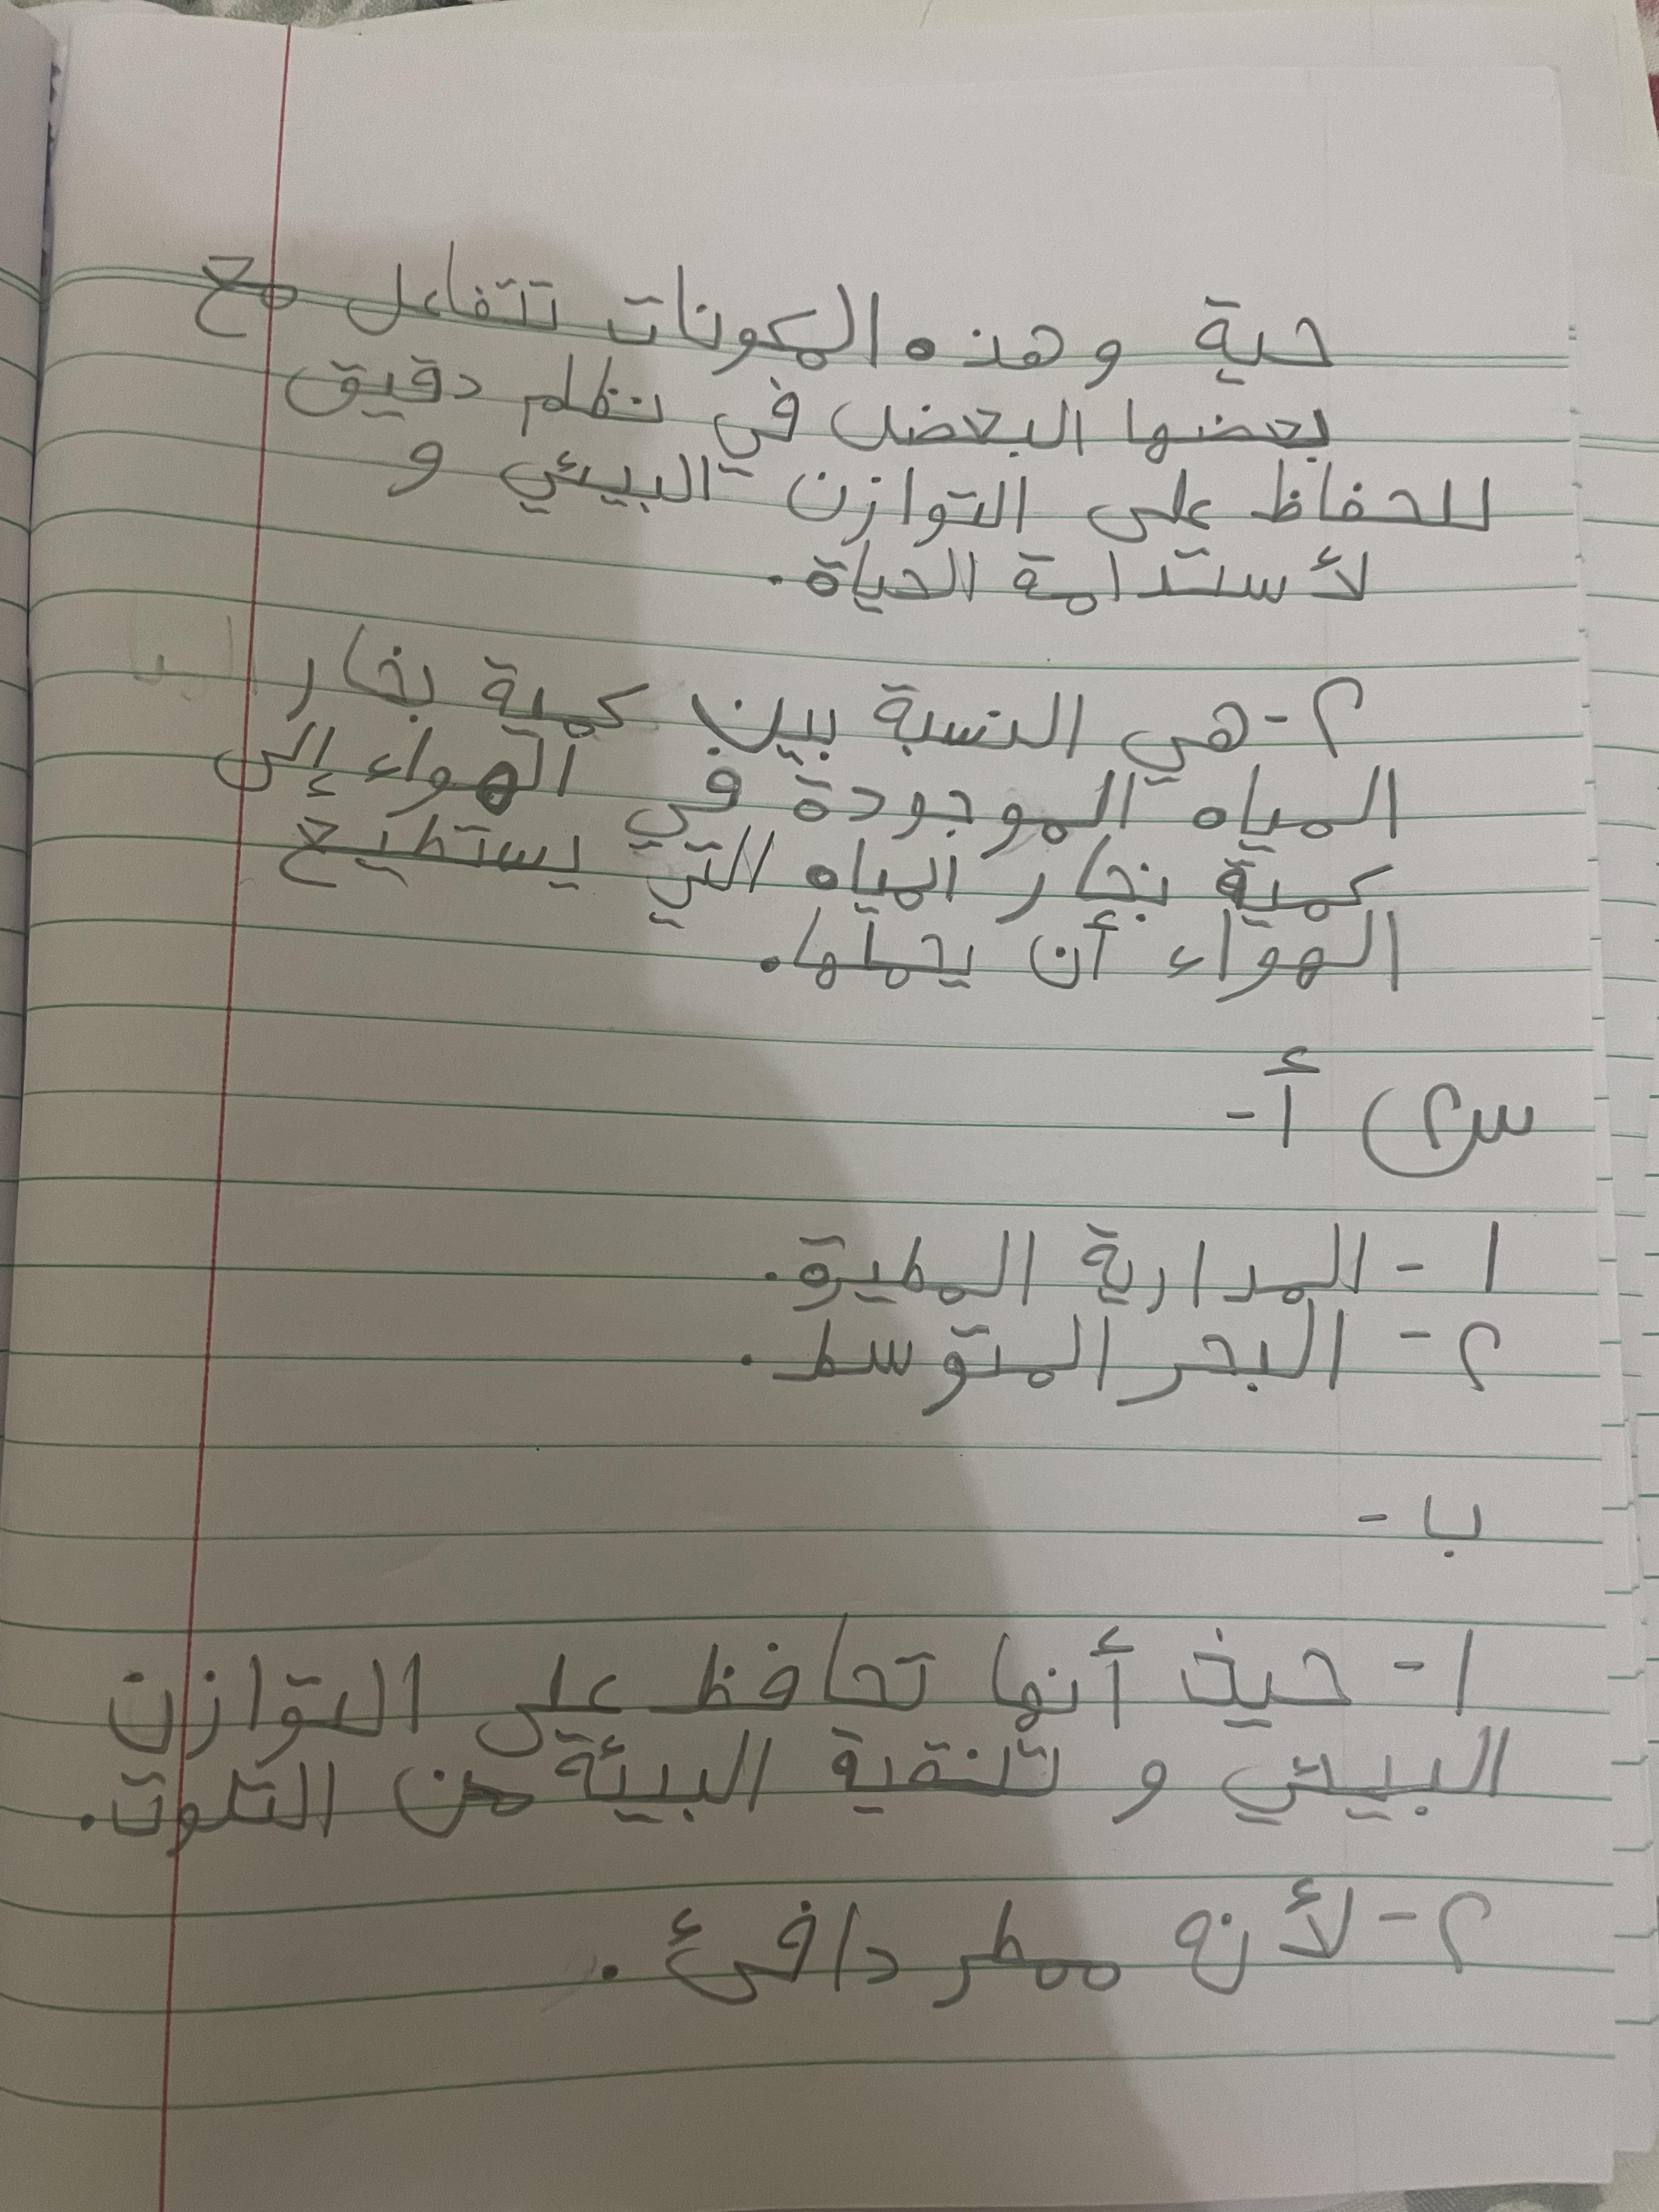 حية وهذه المكونات تتفاعل مع
بعضها البعض في نظلم دقيق
للحفاظ على التوازن البيئي و
لأستدامة الحياة.
٢- هي النسبة بين كمية بخار
المياه الموجودة في الهواء إلى
كمية بخار المياه التي يستطيع
الهواء أن يحملها.
س٢ أ-
١- المدارية المطيرة.
٢- البحر المتوسط.
ب-
١- حيث أنها تحافظ على التوازن
البيئي و تنقية البيئة من التلوث.
٢- لأنه ممطر دافئ.